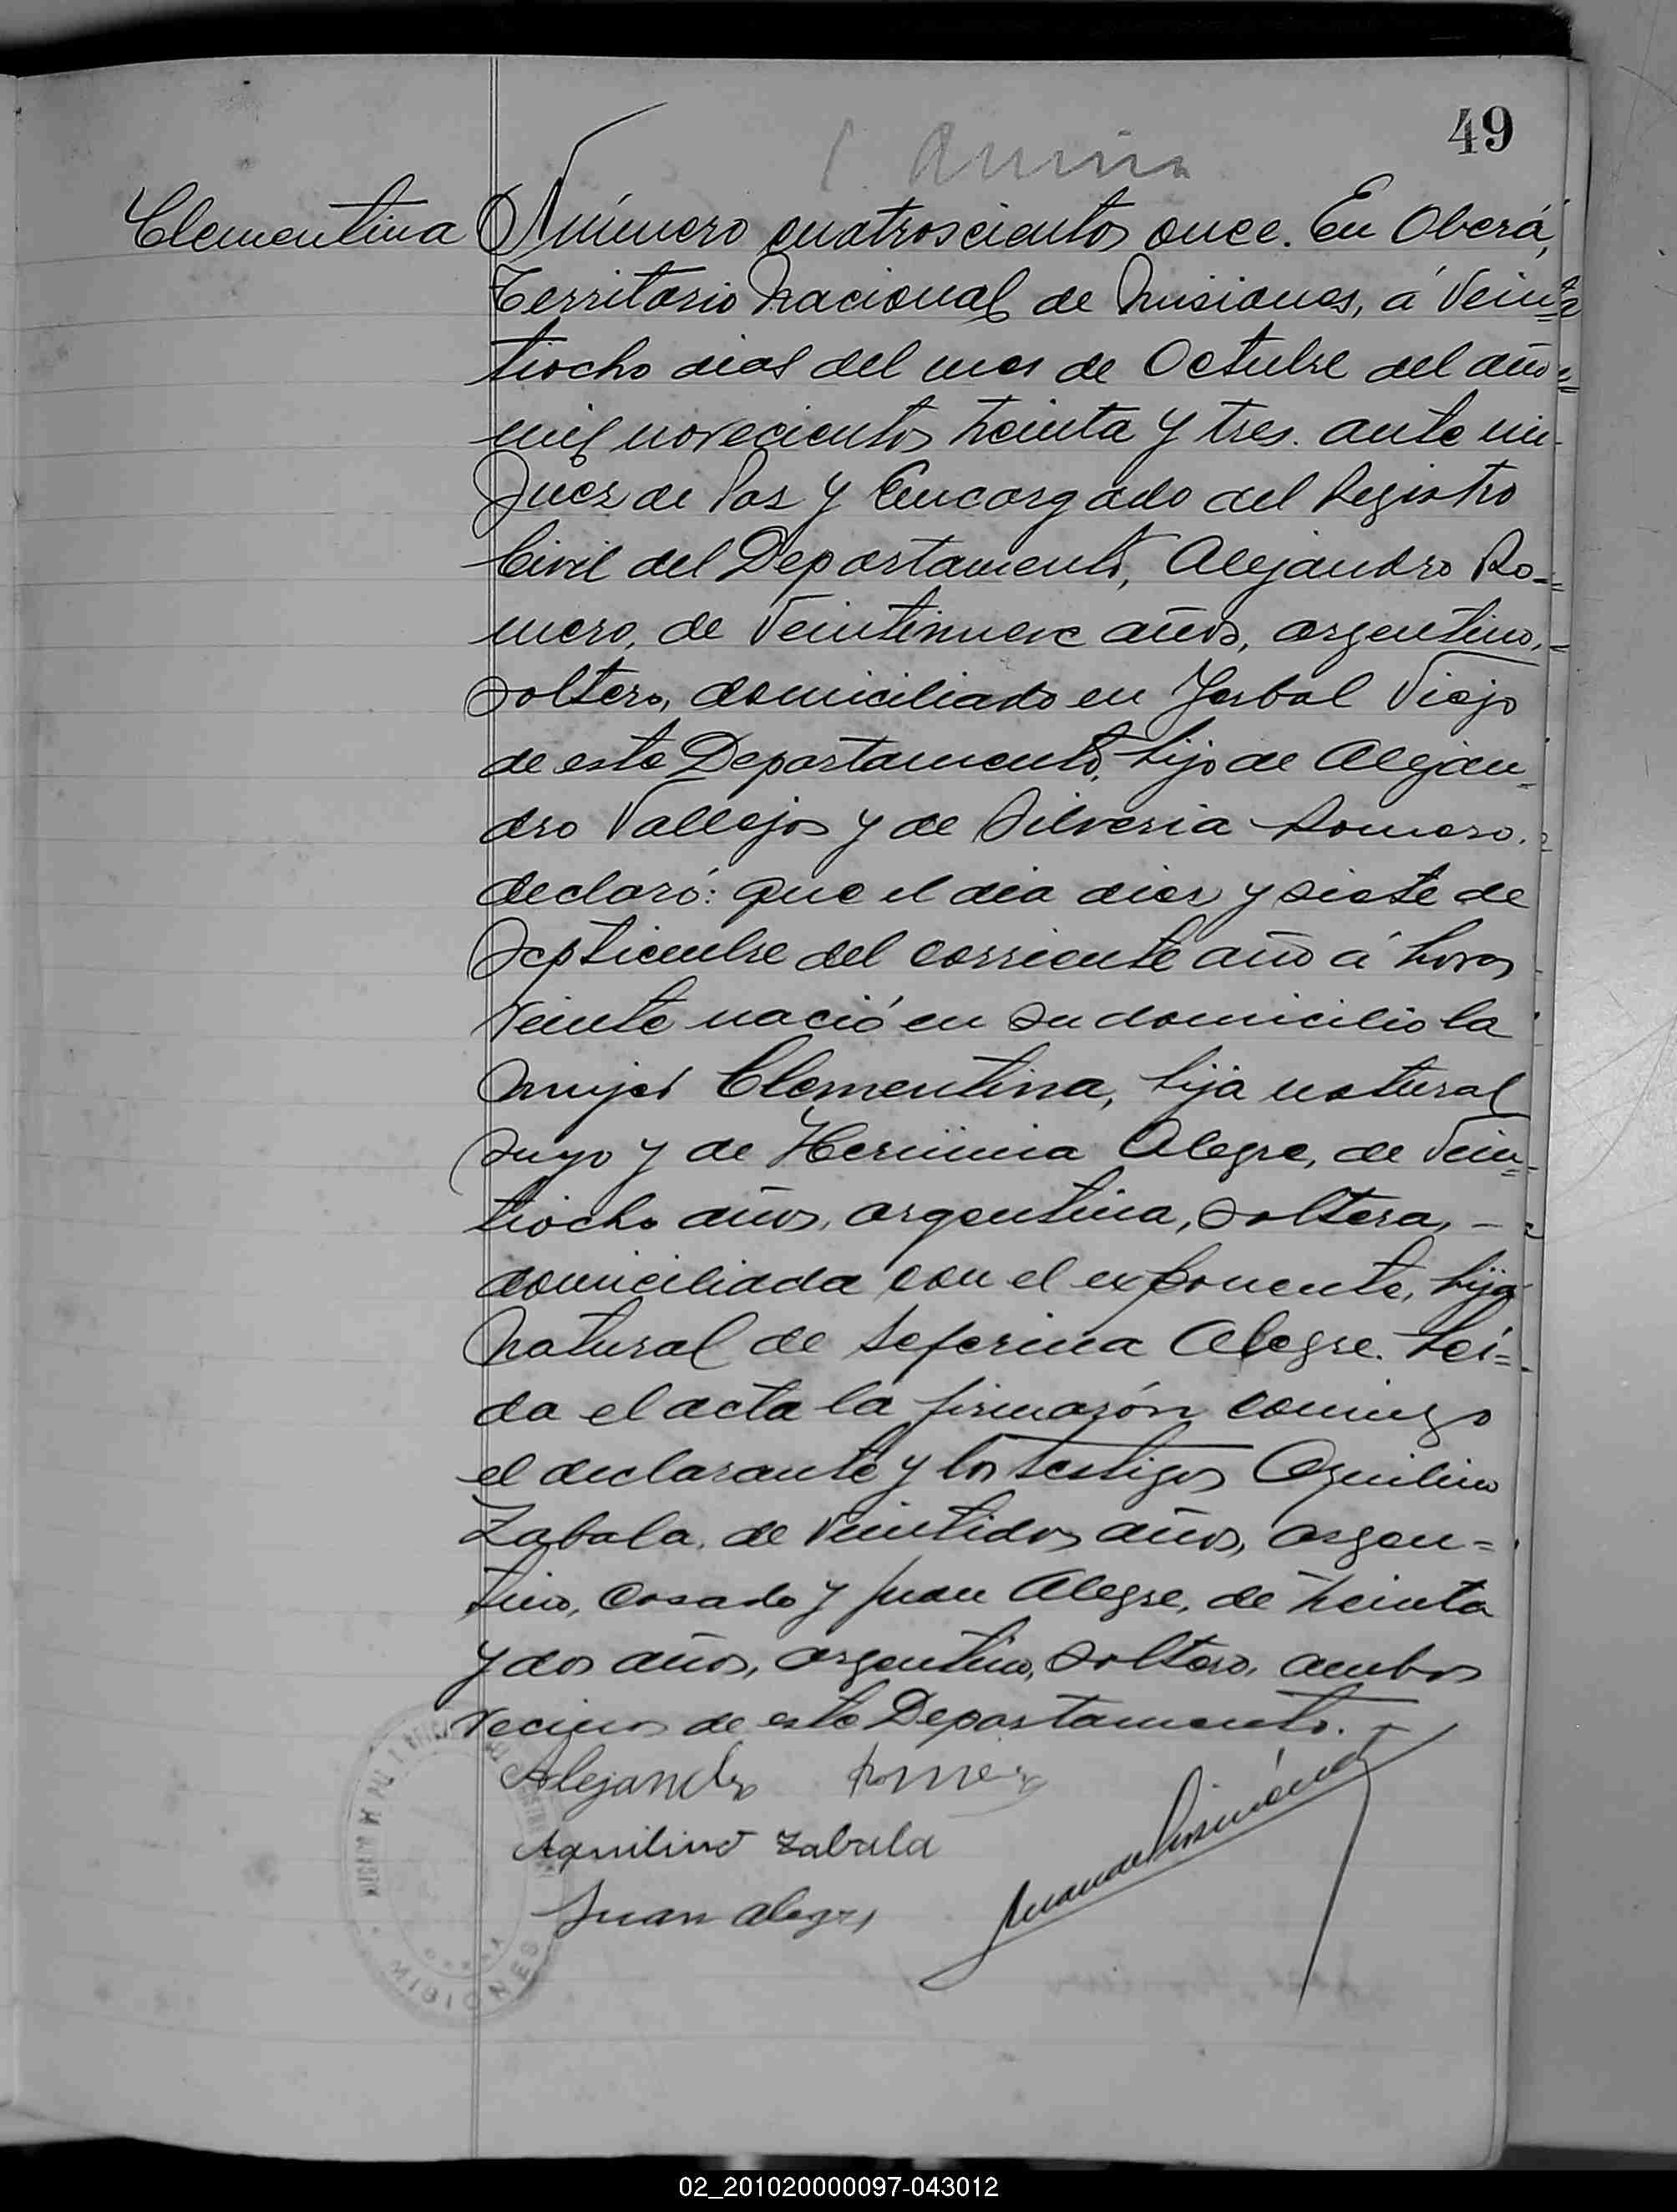 49
Clementina
Número cuatroscientos once. En Oberá,
Territorio Nacional de Misiones, á Vein-
tiocho dias del mes de Octubre del año
mil novecientos treinta y tres. ante mi
Juez de Paz y Encargado del Registro
Civil del Departamento, Alejandro Ro-
mero, de Veintinueve años, argentino,
soltero, domiciliado en Yerbal Viejo
de este Departamento, hijo de Alejan-
dro Vallejos y de Silveria Romero.
declaró: que el dia diez y siete de
Septiembre del corriente año á horas
veinte nació en su domicilio la
mujer Clementina, hija natural
suya y de Herminia Alegre, de Vein-
tiocho años, argentina, soltera, -
domiciliada con el exponente, hija
natural de Seferina Alegre. Leí-
da el acta la firmarón comigo
el declarante y los testigos Aquilino
Zabala, de Veintidos años, argen=
tino, casado y Juan Alegre, de treinta
y dos años, argentino, soltero, ambos
vecinos de este Departamento.
Alejandro Romero
Aquilino Zabala
Juan Alegre
MISIONES
02_201020000097-043012